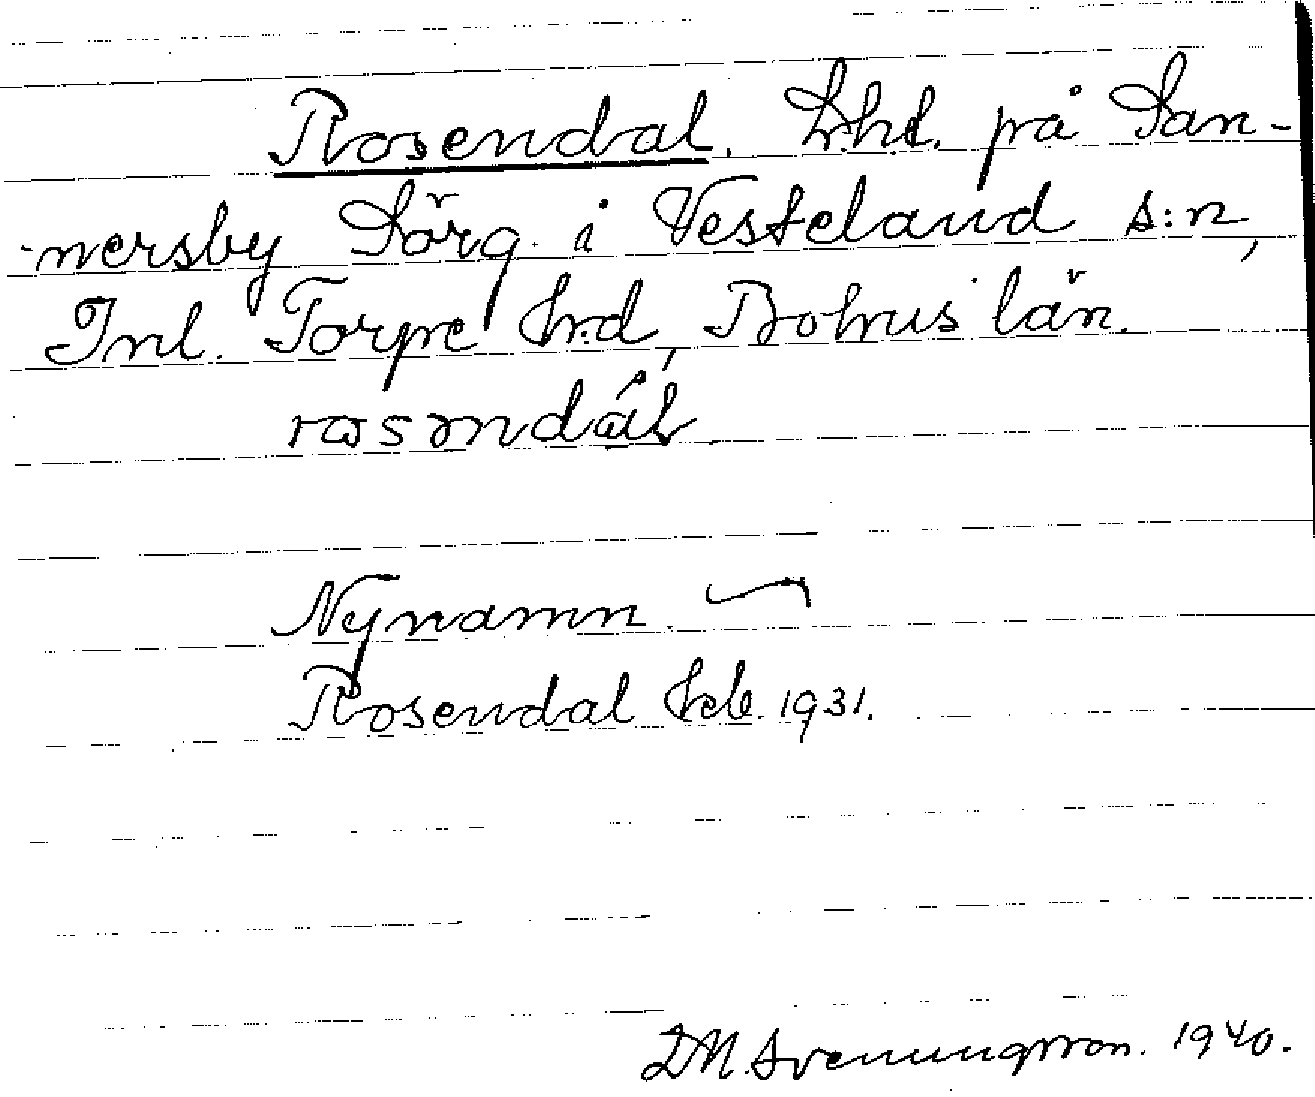 Rosendal. Lht. på San-
nersby Sörg. i Vesteland s:n,
Inl. Torpe hrd, Bohus län.
rosendál
Nynamn.
Rosendal Feb. 1931.
D M. Svenungsson. 1940.